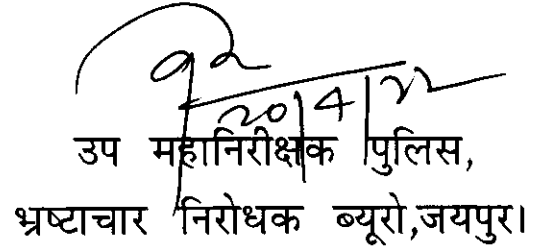 20/4/22
उप महानिरीक्षक पुलिस,
भ्रष्टाचार निरोधक ब्यूरो,जयपुर।